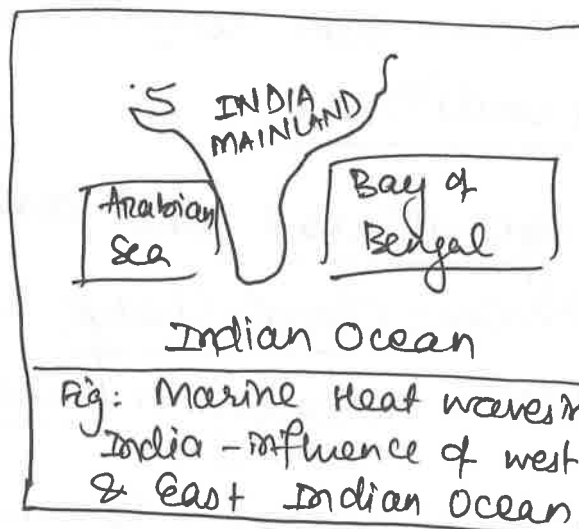 INDIA
MAINLAND
Arabian
Sea
Bay of
Bengal
Indian Ocean
Fig: Marine Heat waves in
India - influence of west
& East Indian Ocean